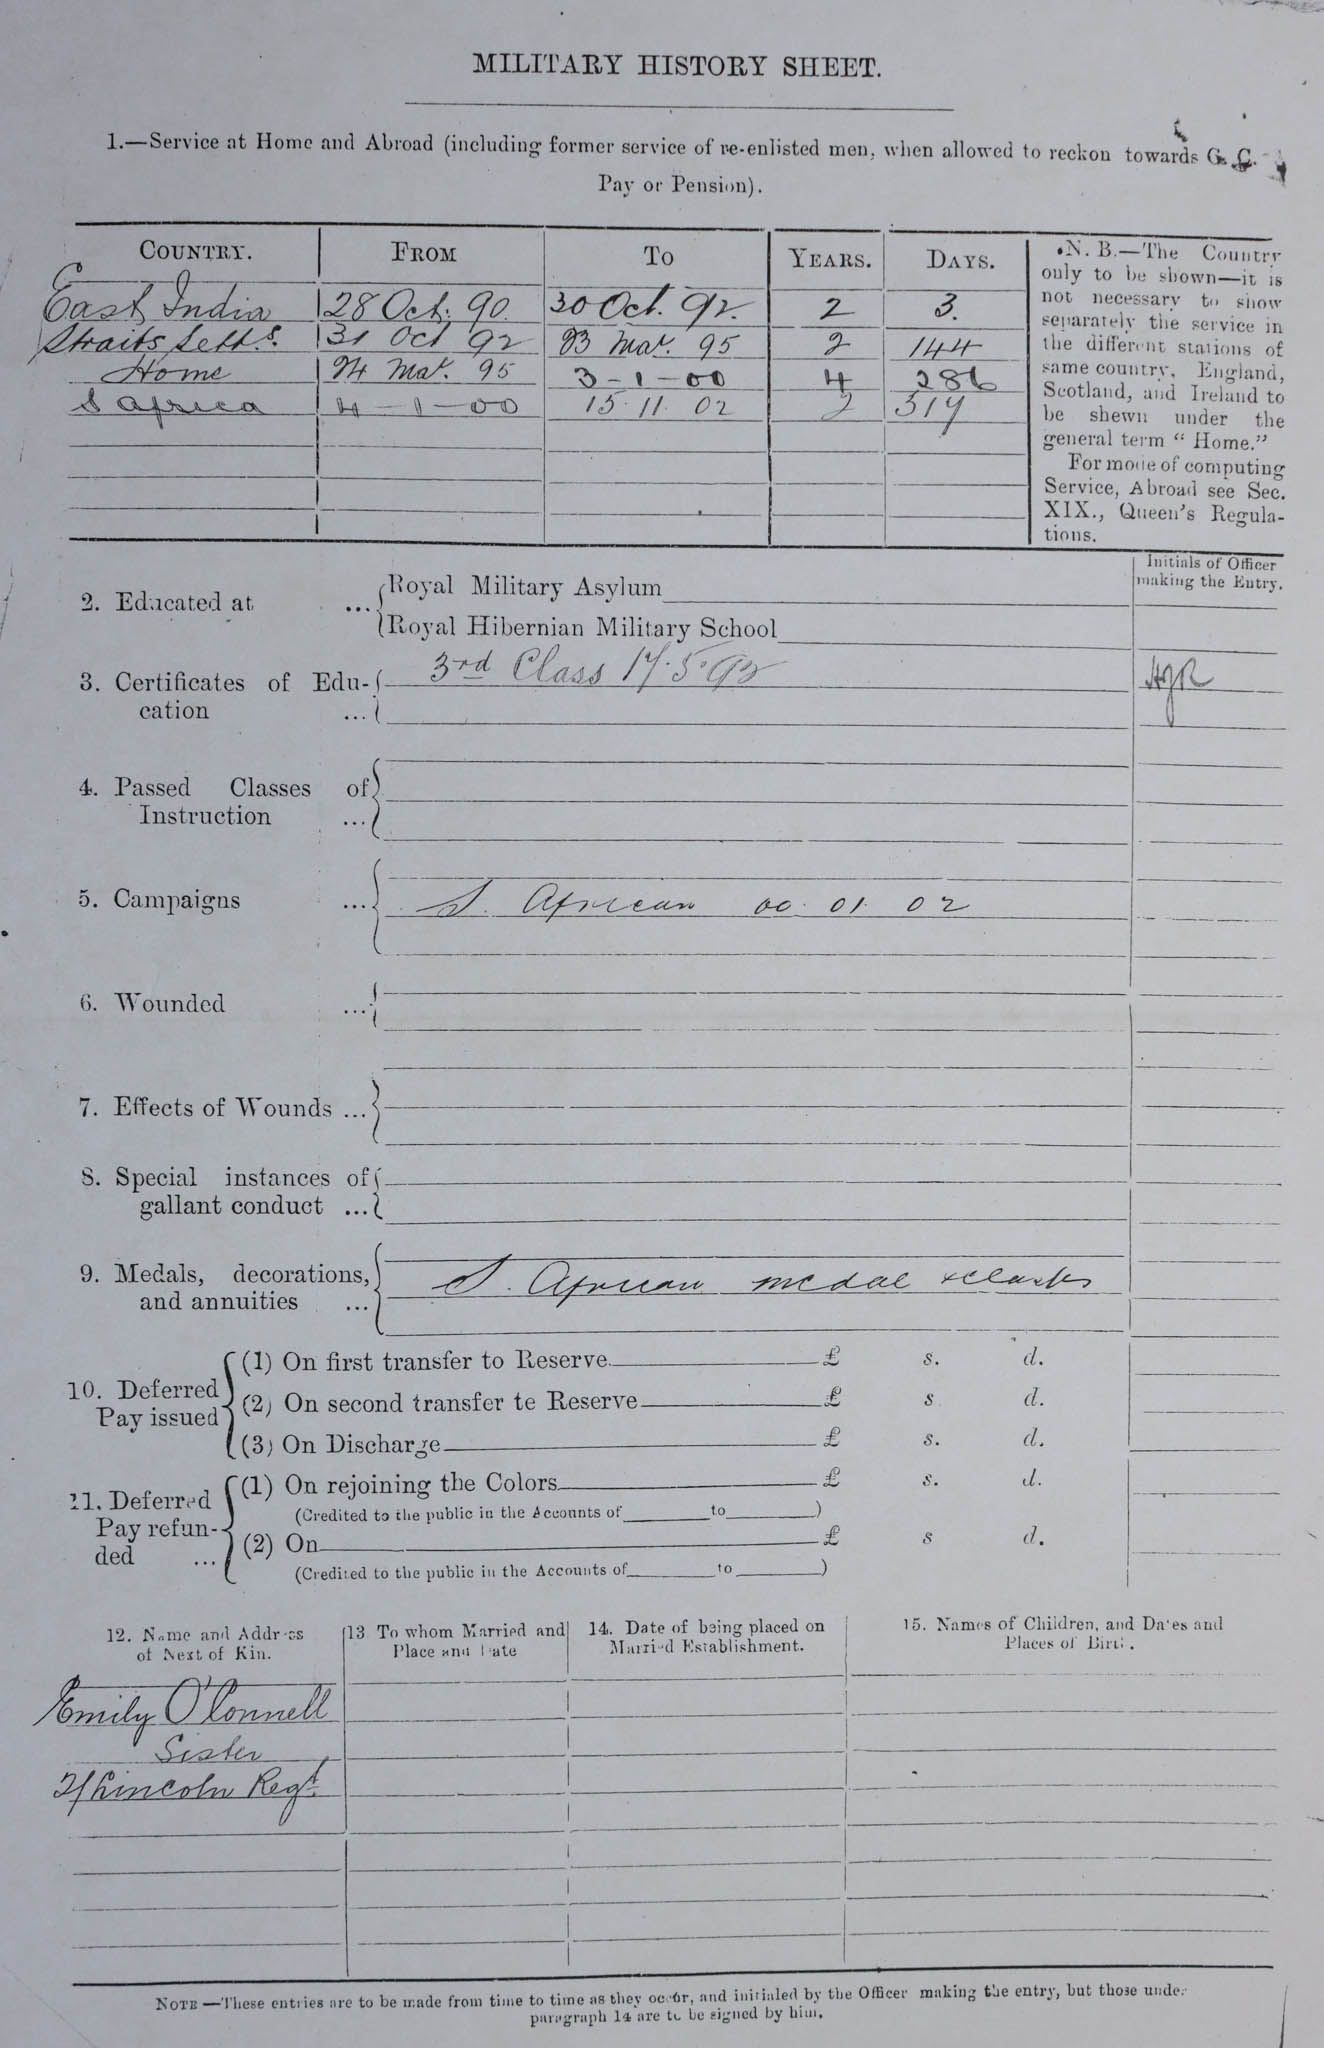 MILITARY HISTORY SHEET.
1.—Service at Home and Abroad (including former service of re-enlisted men, when allowed to reckon towards G. C.
Pay or Pension).
COUNTRY. FROM TO YEARS. DAYS.
East India 28 Oct. 90. 30 Oct. 92. 2 3.
Straits Setts. 31 Oct 92 23 Mar. 95 2 144
Home 24 Mar. 95 3-1-00 4 286
S Africa 4-1-00 15.11.02 2 317
N. B.—The Country
only to be shown—it is
not necessary to show
separately the service in
the different stations of
same country. England,
Scotland, and Ireland to
be shewn under the
general term “Home.”
For mode of computing
Service, Abroad see Sec.
XIX., Queen's Regula-
tions.
Initials of Officer
making the Entry.
2. Educated at ... Royal Military Asylum
Royal Hibernian Military School
3. Certificates of Edu- 3rd Class 17.5.92
cation ...
4. Passed Classes of
Instruction ...
5. Campaigns ... S. African 00. 01. 02
6. Wounded ...
7. Effects of Wounds ...
8. Special instances of
gallant conduct ...
9. Medals, decorations, S. African medal & clasps
and annuities ...
10. Deferred
Pay issued
(1) On first transfer to Reserve £ s. d.
(2) On second transfer te Reserve £ s d.
(3) On Discharge £ s. d.
11. Deferred
Pay refun-
ded ...
(1) On rejoining the Colors £ s. d.
(Credited to the public in the Accounts of to )
(2) On £ s d.
(Credited to the public in the Accounts of to )
12. Name and Address
of Next of Kin.
13 To whom Married and
Place and Date
14. Date of being placed on
Married Establishment.
15. Names of Children, and Dates and
Places of Birth.
Emily O'Connell
Sister
2/Lincoln Regt.
NOTE—These entries are to be made from time to time as they occur, and initialed by the Officer making the entry, but those under
paragraph 14 are to be signed by him.